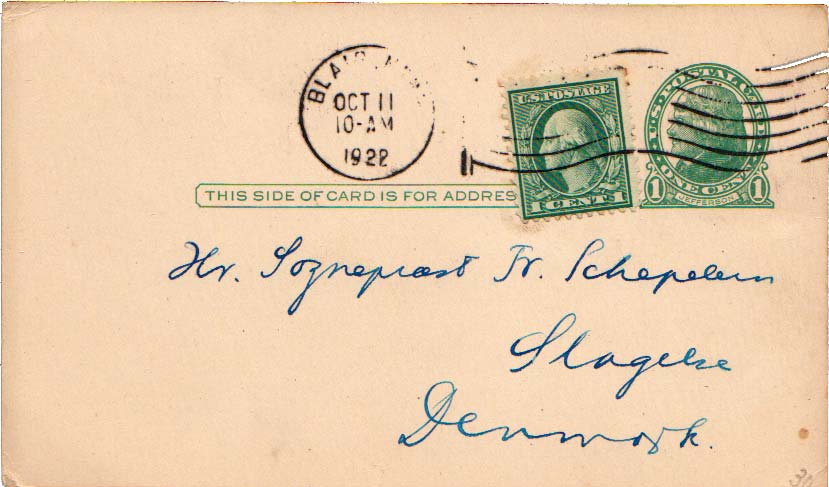 BLAIR, NEBR.
OCT 11
10-AM
1922
U.S. POSTAGE
1 CENT 1
U.S. POSTAL CARD
1 ONE CENT 1
JEFFERSON
THIS SIDE OF CARD IS FOR ADDRES
Hr. Sognepræst Fr. Schepelern
Slagelse
Denmark.